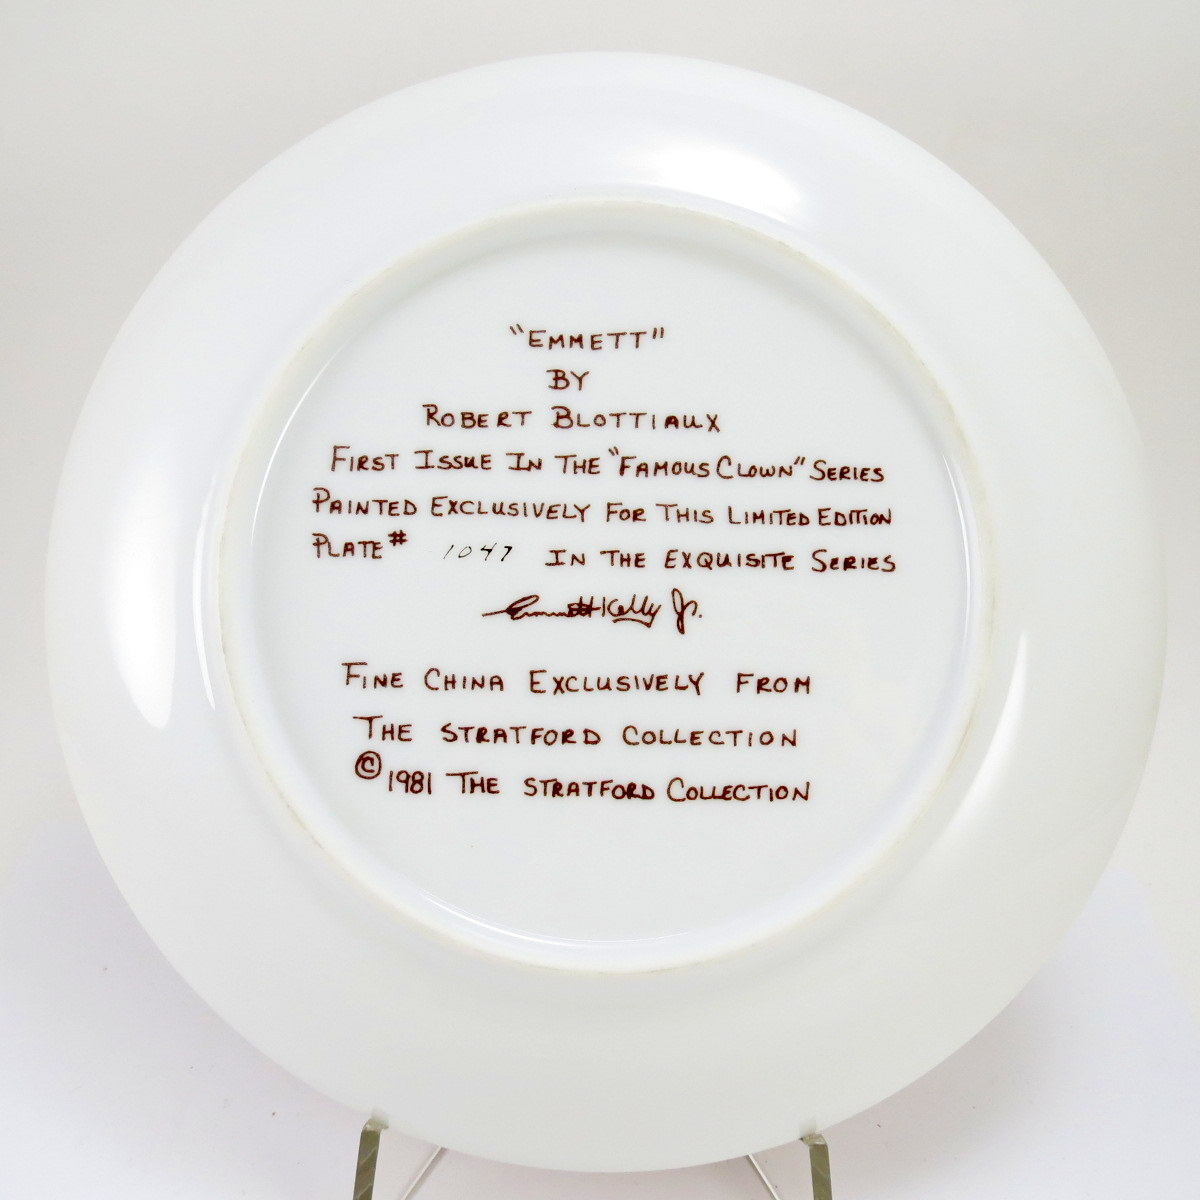 "EMMETT"
BY
ROBERT BLOTTIAUX
FIRST ISSUE IN THE "FAMOUS CLOWN" SERIES
PAINTED EXCLUSIVELY FOR THIS LIMITED EDITION
PLATE # 1047 IN THE EXQUISITE SERIES
Emmett Kelly Jr.
FINE CHINA EXCLUSIVELY FROM
THE STRATFORD COLLECTION
© 1981 THE STRATFORD COLLECTION